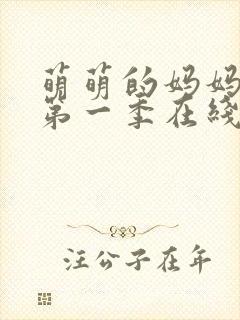 萌萌的妈妈
第一季在綫
汪公子在年